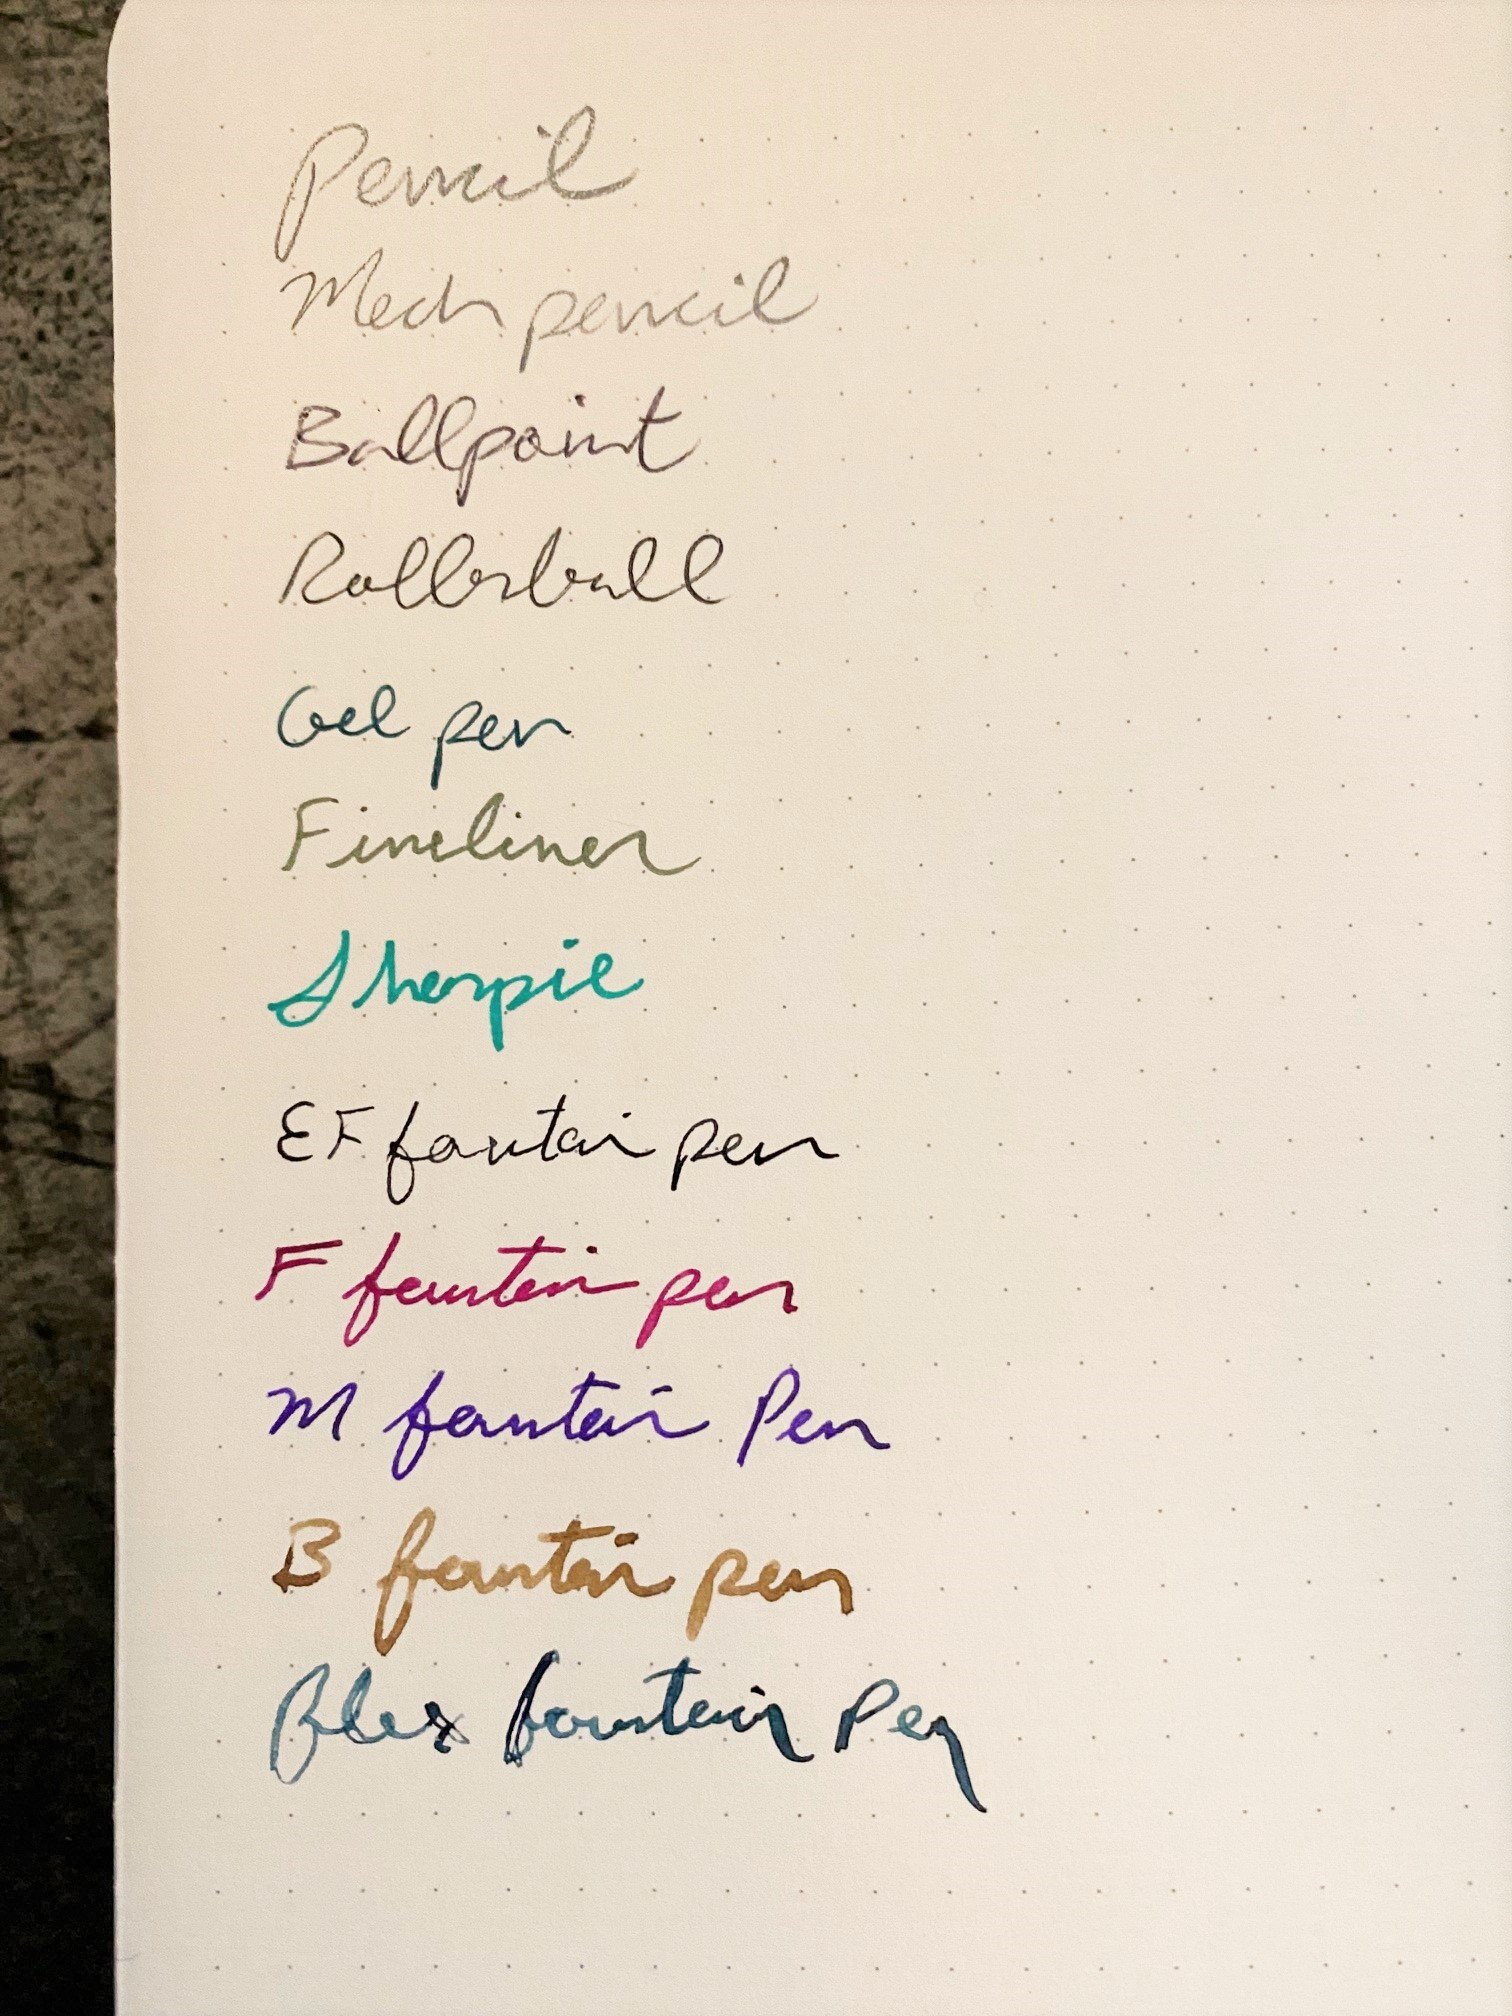 Pencil
Mech pencil
Ballpoint
Rollerball
Gel pen
Fineliner
Sharpie
EF fountain pen
F fountain pen
M fountain Pen
B fountain pen
Flex fountain Pen